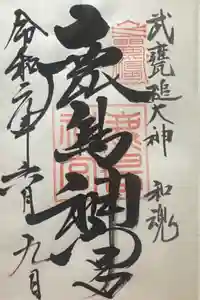 武甕槌大神 和魂
鹿島神宮
令和二年六月九日